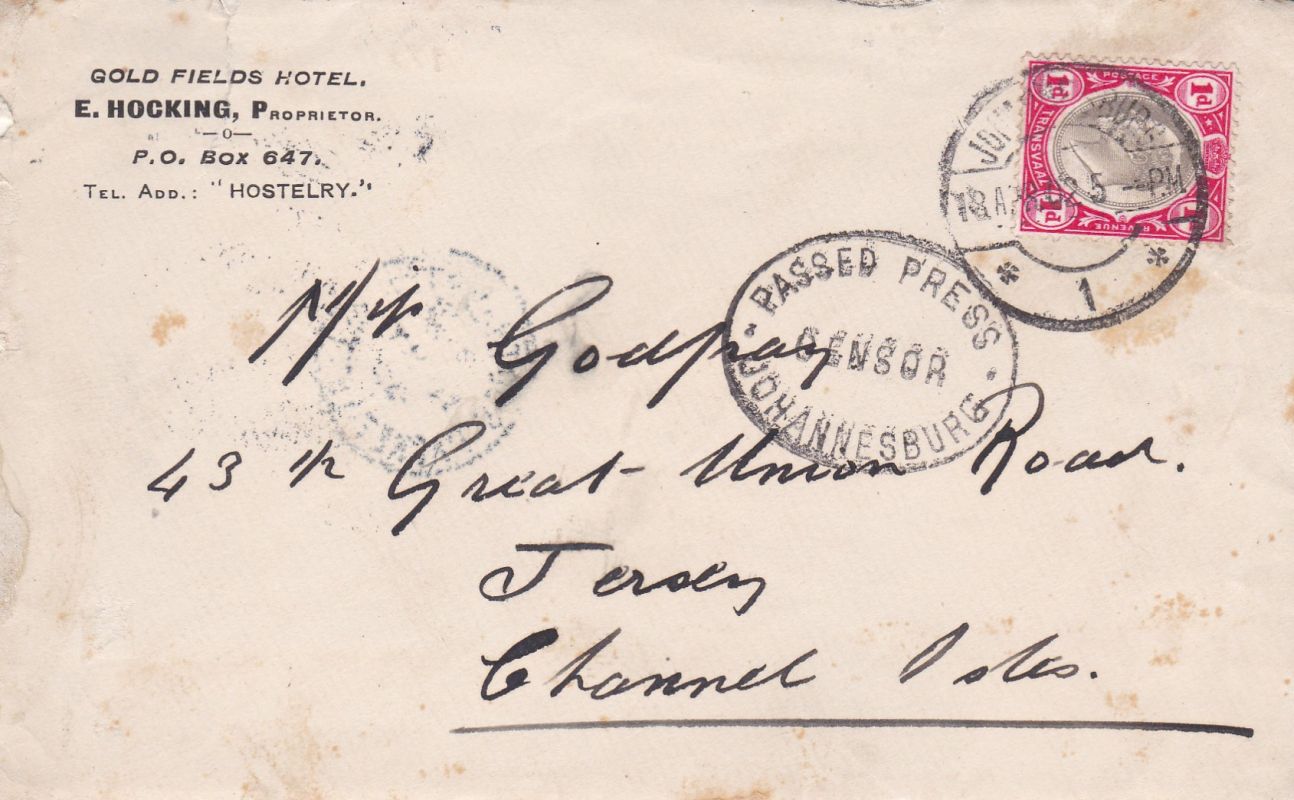 GOLD FIELDS HOTEL.
E. HOCKING, PROPRIETOR.
—o—
P.O. BOX 647.
TEL. ADD.: "HOSTELRY."
1d POSTAGE 1d
TRANSVAAL
1d REVENUE 1d
5 PM
1
PASSED PRESS
CENSOR
JOHANNESBURG
Godfray
43 Great Union Road.
Jersey
Channel Isles.